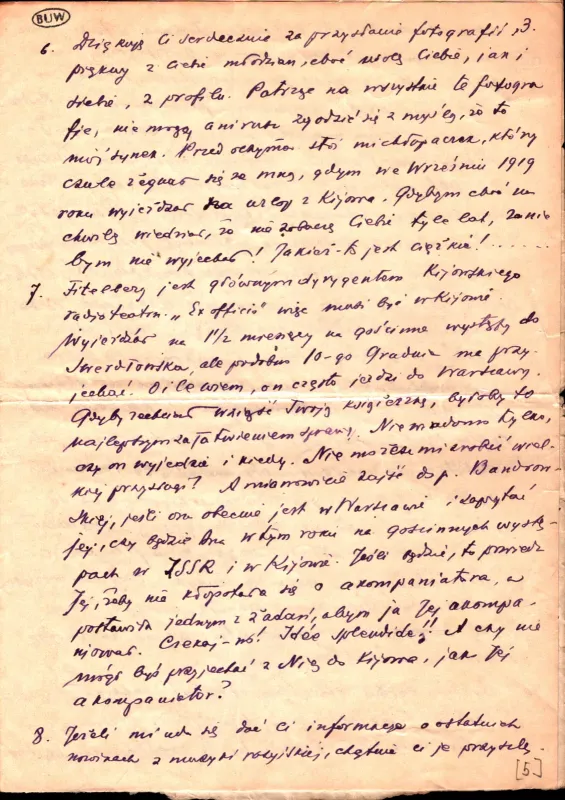 BUW
3.
6. Dziękuję Ci serdecznie za przysłanie fotografii,
piękny z Ciebie młodzian, choć wolę Ciebie, jak i
siebie, z profilu. Patrzę na wszystkie te fotogra
fje, nie mogę ani rusz zgodzić się z myślą, że to
mój synek. Przed oczyma stoi mi chłopaczek, który
czule żegnał się ze mną, gdym we Wrześniu 1919
roku wyjeżdżał na urlop z Kijowa. Gdybym choć na
chwilę wiedział, że nie zobaczę Ciebie tyle lat, za nic
bym nie wyjechał! Jakież to jest ciężkie!......
7. Fitelberg jest głównym dyrygentem Kijowskiego
radioteatru. „Ex officio" więc musi być w Kijowie.
Wyjeżdżał na 1½ miesięcy na gościnne występy do
Swerdłowska, ale podobno 10-go Grudnia ma przy-
jechać. O ile wiem, on często jeździ do Warszawy.
Gdyby zechciał wziąść Twoją książeczkę, byłoby to
najlepszym załatwieniem sprawy. Nie wiadomo tylko,
czy on wyjedzie i kiedy. Nie możesz mi zrobić wiel-
kiej przysługi? A mianowicie zajść do p. Bandrow-
skiej, jeśli ona obecnie jest w Warszawie i zapytać
jej, czy będzie ona w tym roku na gościnnych wystę-
pach w ZSSR i w Kijowie. Jeśli będzie, to powiedz
Jej, żeby nie kłopotała się o akompaniatora, a
postawiła jednym z żądań, abym ja Jej akompa-
niował. Czekaj-no! Idée splendide!! A czy nie
mógłbyś przyjechać z Nią do Kijowa, jak Jej
akompaniator?
8. Jeżeli mi uda się dać Ci informacje o ostatnich
nowinach z muzyki rosyjskiej, chętnie ci je przyszlę.
[5]